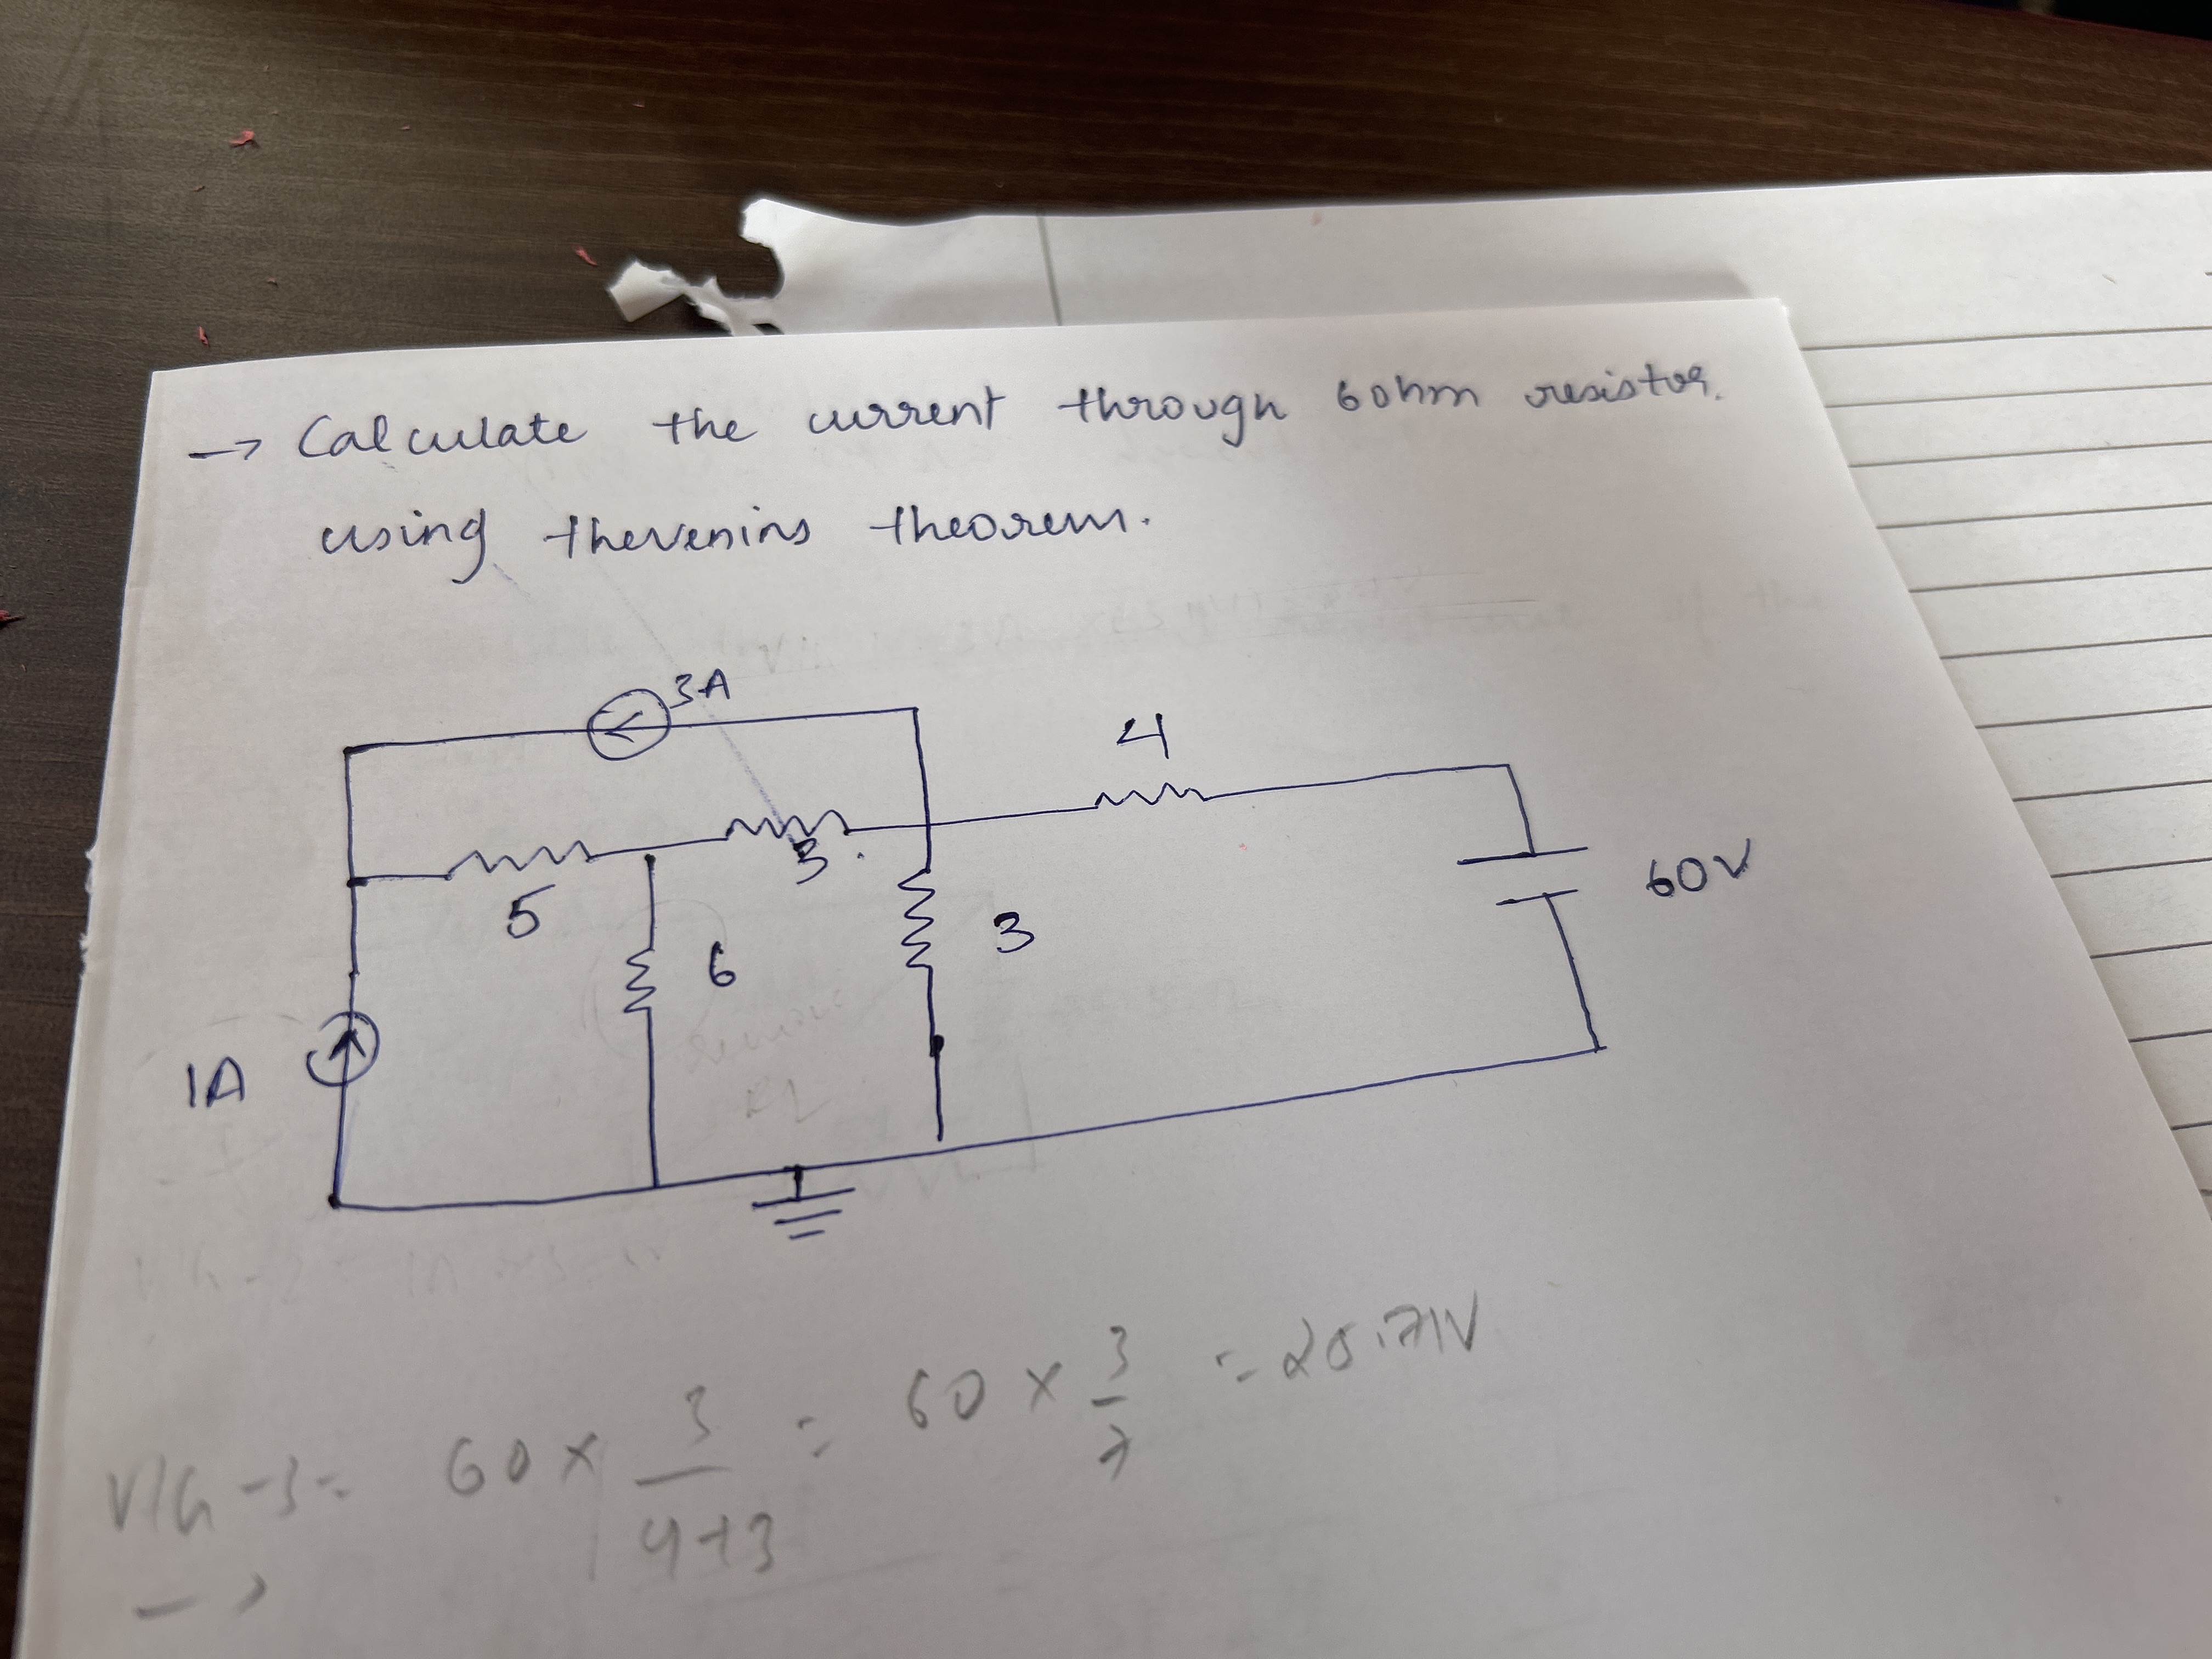 → Calculate the current through 6ohm resistor.
using thevenins theorem.
3A
4
5
3
6
3
60V
1A
60 × 3/4+3 = 60 × 3/7 = 25.71V